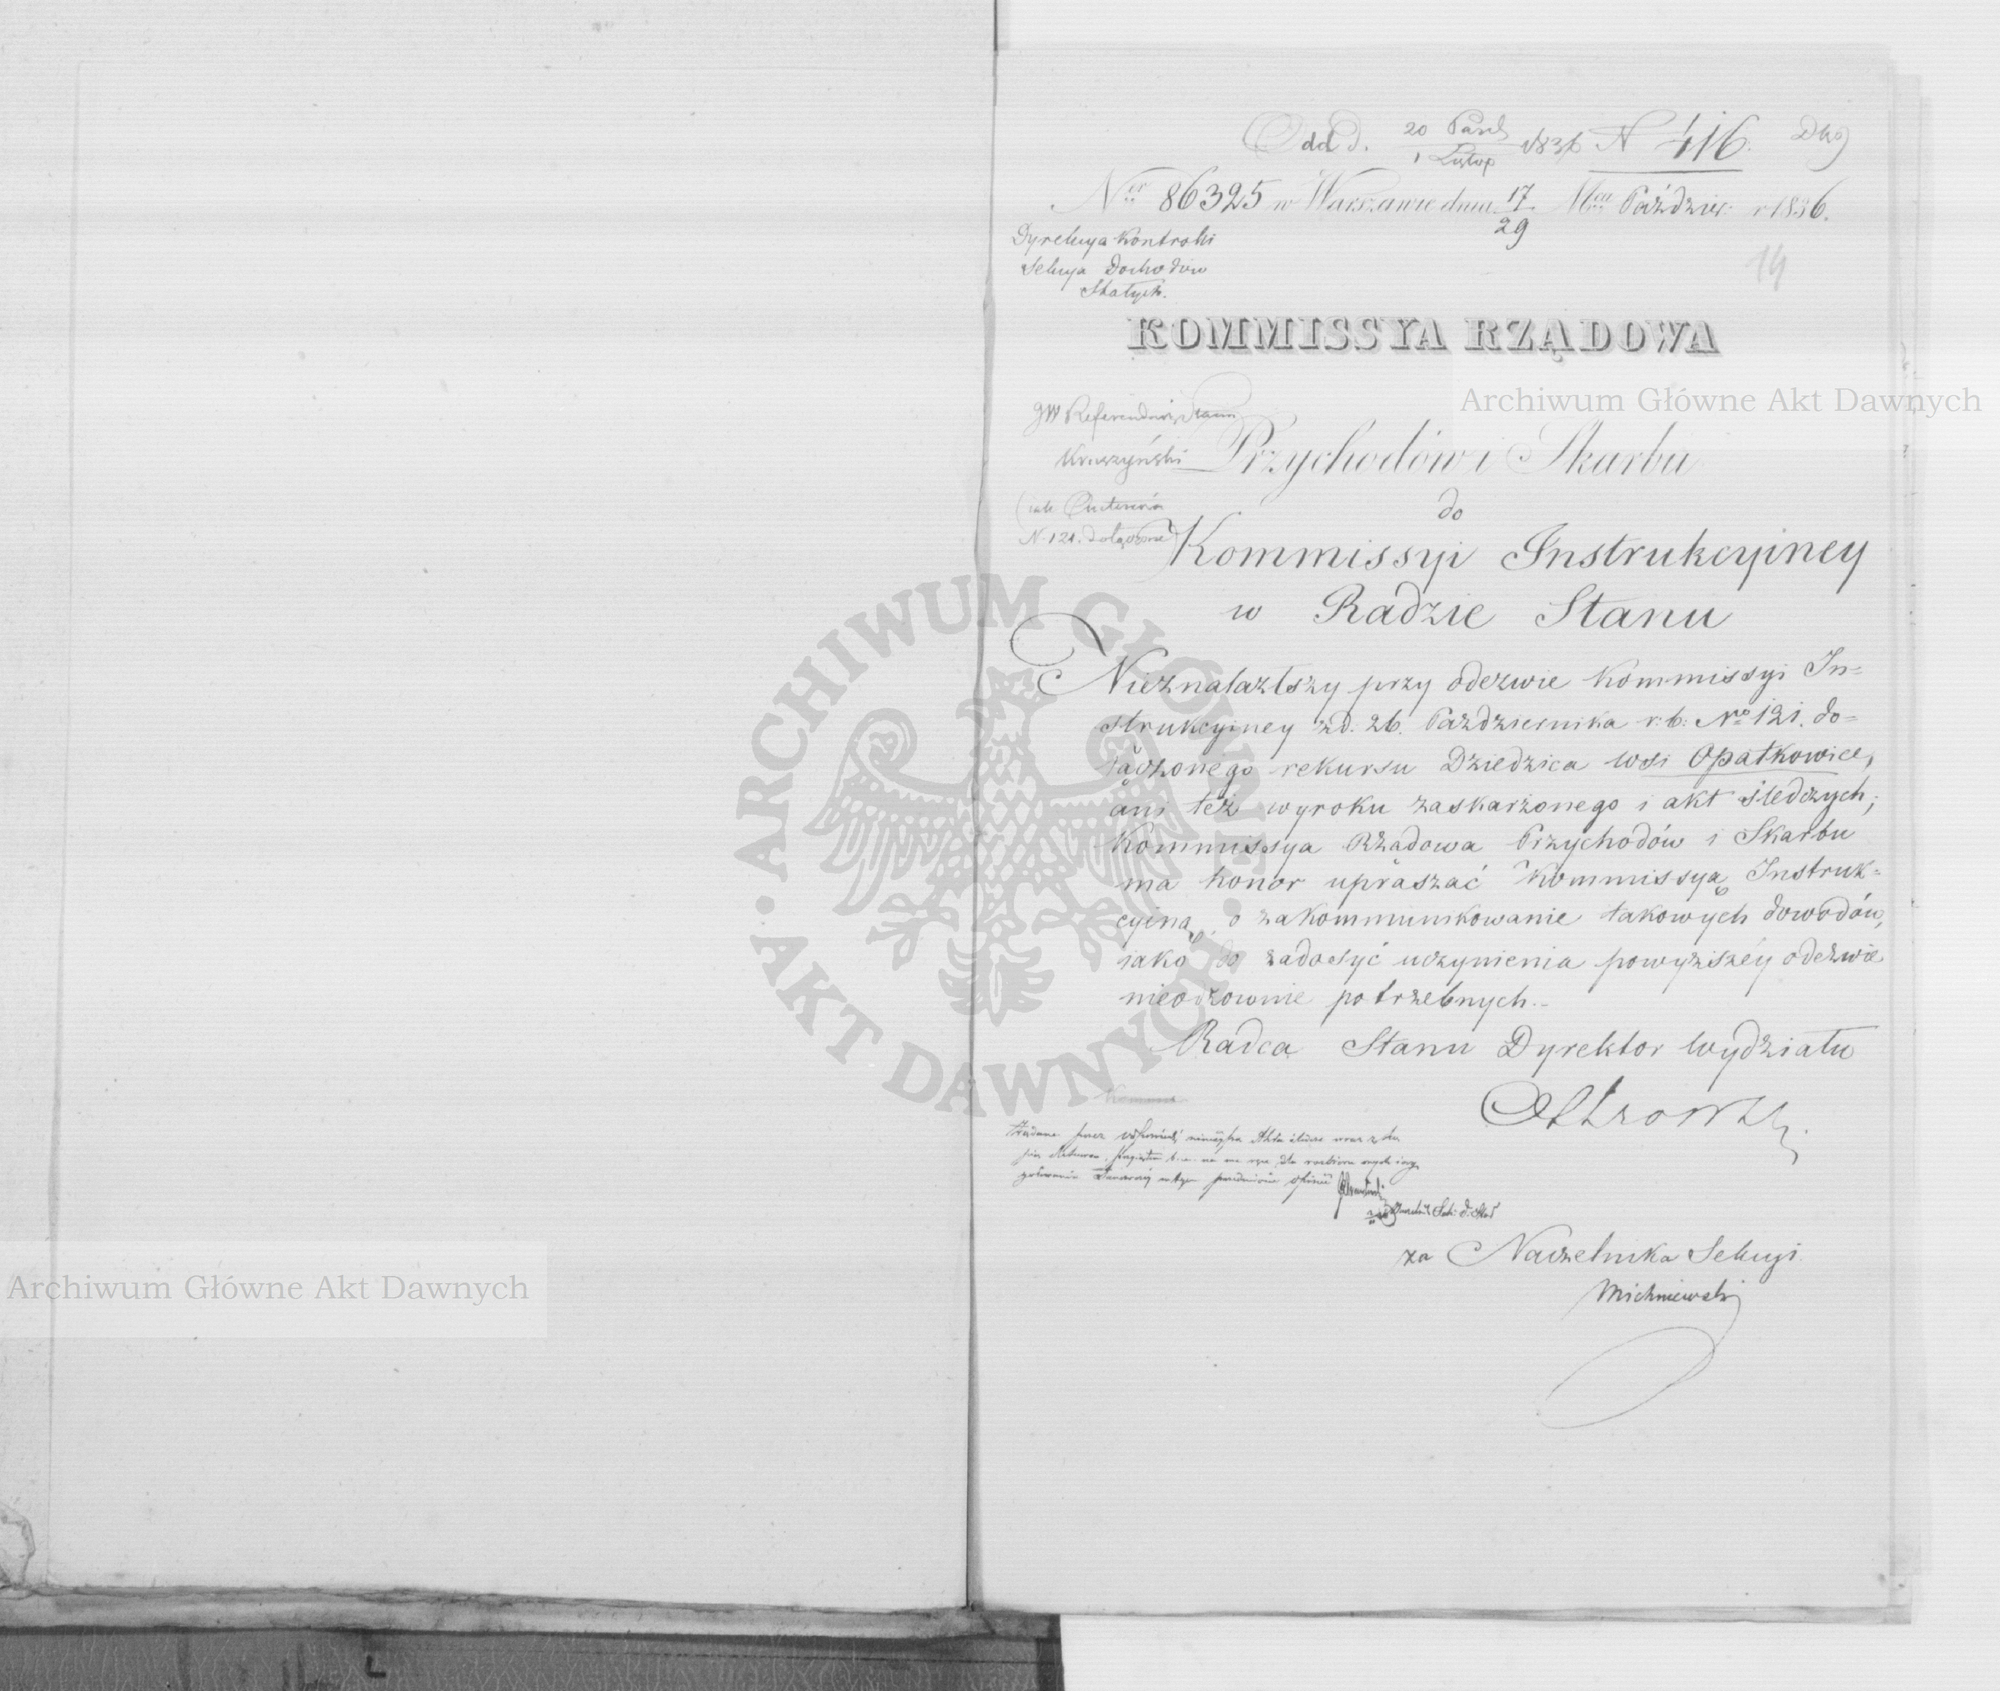 Odd d. 20 Paźd / 1 Listop 1836 N 416.
Ner 86325 w Warszawie dnia 17/29 Mca Paździer: r 1836.
Dyrekcya Kontrolli
Sekcya Dochodów
Stałych.
14
KOMMISSYA RZĄDOWA
JW Referendarz Stanu
Kruszyński
Przychodów i Skarbu
do
N. 121. dołączone
Kommissyi Instrukcyiney
w Radzie Stanu
Nieznalazłszy przy odezwie Kommissyi In=
strukcyiney z d. 26. Października r. b: No 121. do=
łączonego rekursu Dziedzica wsi Opatkowice,
ani też wyroku zaskarżonego i akt śledczych;
Kommissya Rządowa Przychodów i Skarbu
ma honor upraszać Kommissyą Instruk=
cyiną, o zakommunikowanie takowych dowodów,
iako do zadosyć uczynienia powyższéy odezwie
nieodzownie potrzebnych.
Radca Stanu Dyrektor Wydziału
za Naczelnika Sekcyi
Michniewski
Archiwum Główne Akt Dawnych
Archiwum Główne Akt Dawnych
ARCHIWUM GŁÓWNE • AKT DAWNYCH •